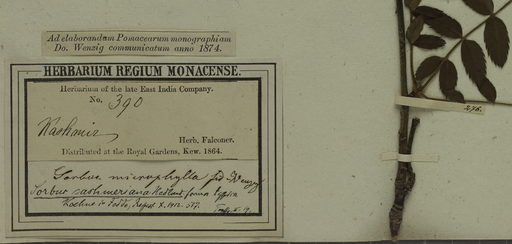 Ad elaborandam Pomacearum monographiam
Do. Wenzig communicatum anno 1874.
HERBARIUM REGIUM MONACENSE.
Herbarium of the late East India Company.
No. 390
Kashmir
Herb. Falconer.
Distributed at the Royal Gardens, Kew. 1864.
Sorbus microphylla
Sorbus cashmeriana Hedlund forma typica
Koehne in Fedde, Repert. X. 1912. 517.
276.